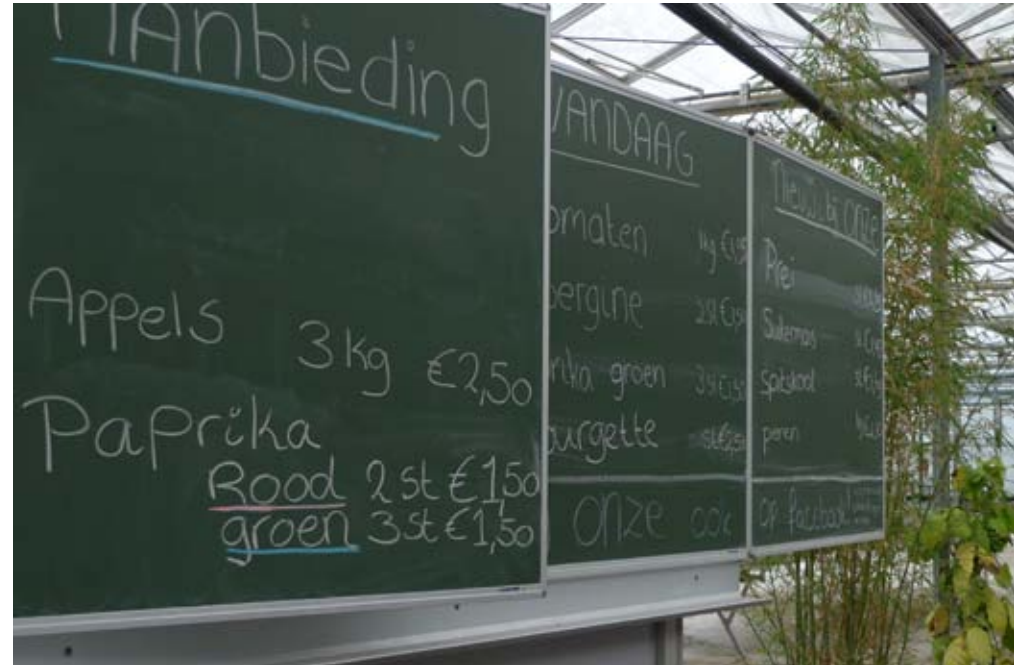 Aanbieding
Appels 3 kg €2,50
Paprika
Rood 2 st €1,50
groen 3 st €1,50
VANDAAG
omaten 1kg
bergine 2 st €1,50
rika groen 3 st €1,50
ourgette
onze ook
Nieuw bij onze
Prei
Suikermais
Spitskool
peren
op facebook